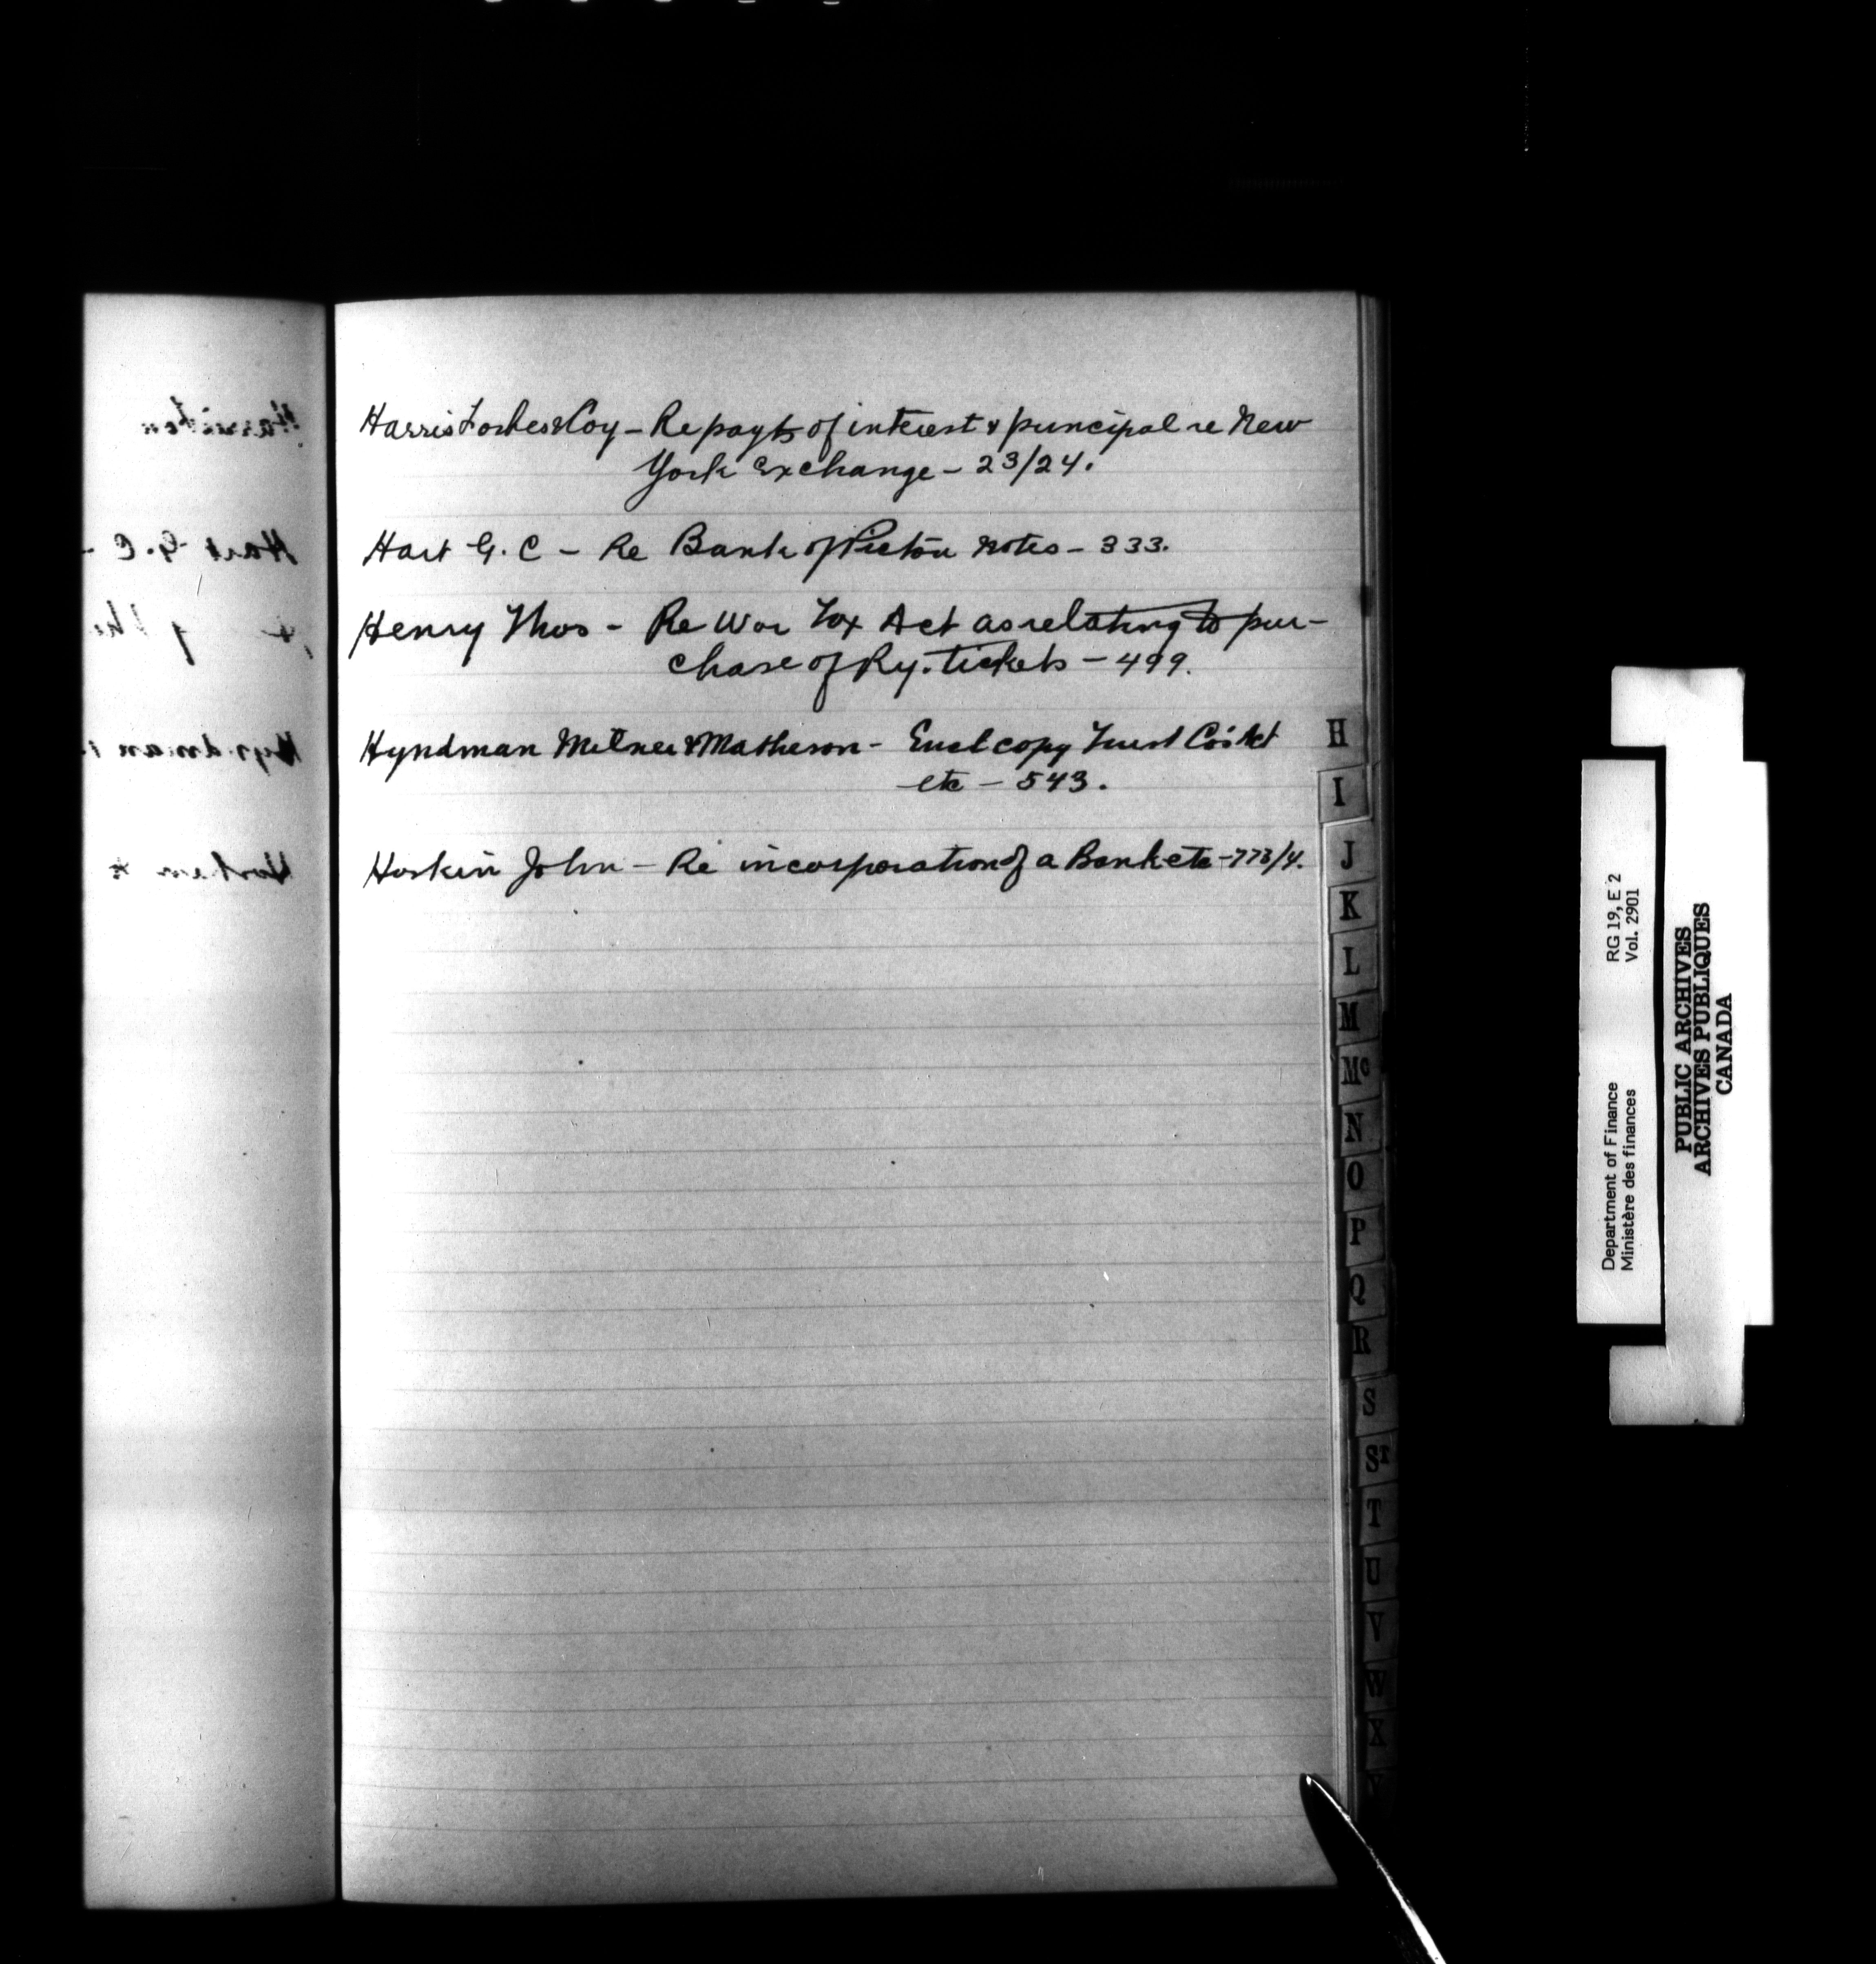 Harris Forbes & Coy – Re payts of interest & principal re New
York Exchange – 23/24.
Hart G. C – Re Bank of Pictou notes – 333.
Henry Thos – Re War Tax Act as relating to pur-
chase of Ry. tickets – 499.
Hyndman Milner & Matheson – Encl copy Trust Co's Act
etc – 543.
Hoskin John – Re incorporation of a Bank etc – 773/4.
H
I
J
K
L
M
Mc
N
O
P
Q
R
S
ST
T
U
V
W
X
Y
Department of Finance RG 19, E 2
Ministère des finances Vol. 2901
PUBLIC ARCHIVES
ARCHIVES PUBLIQUES
CANADA